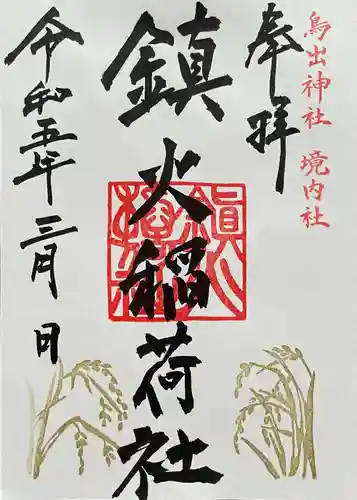 鳥出神社 境内社
奉拝
鎮火稲荷社
令和五年三月 日